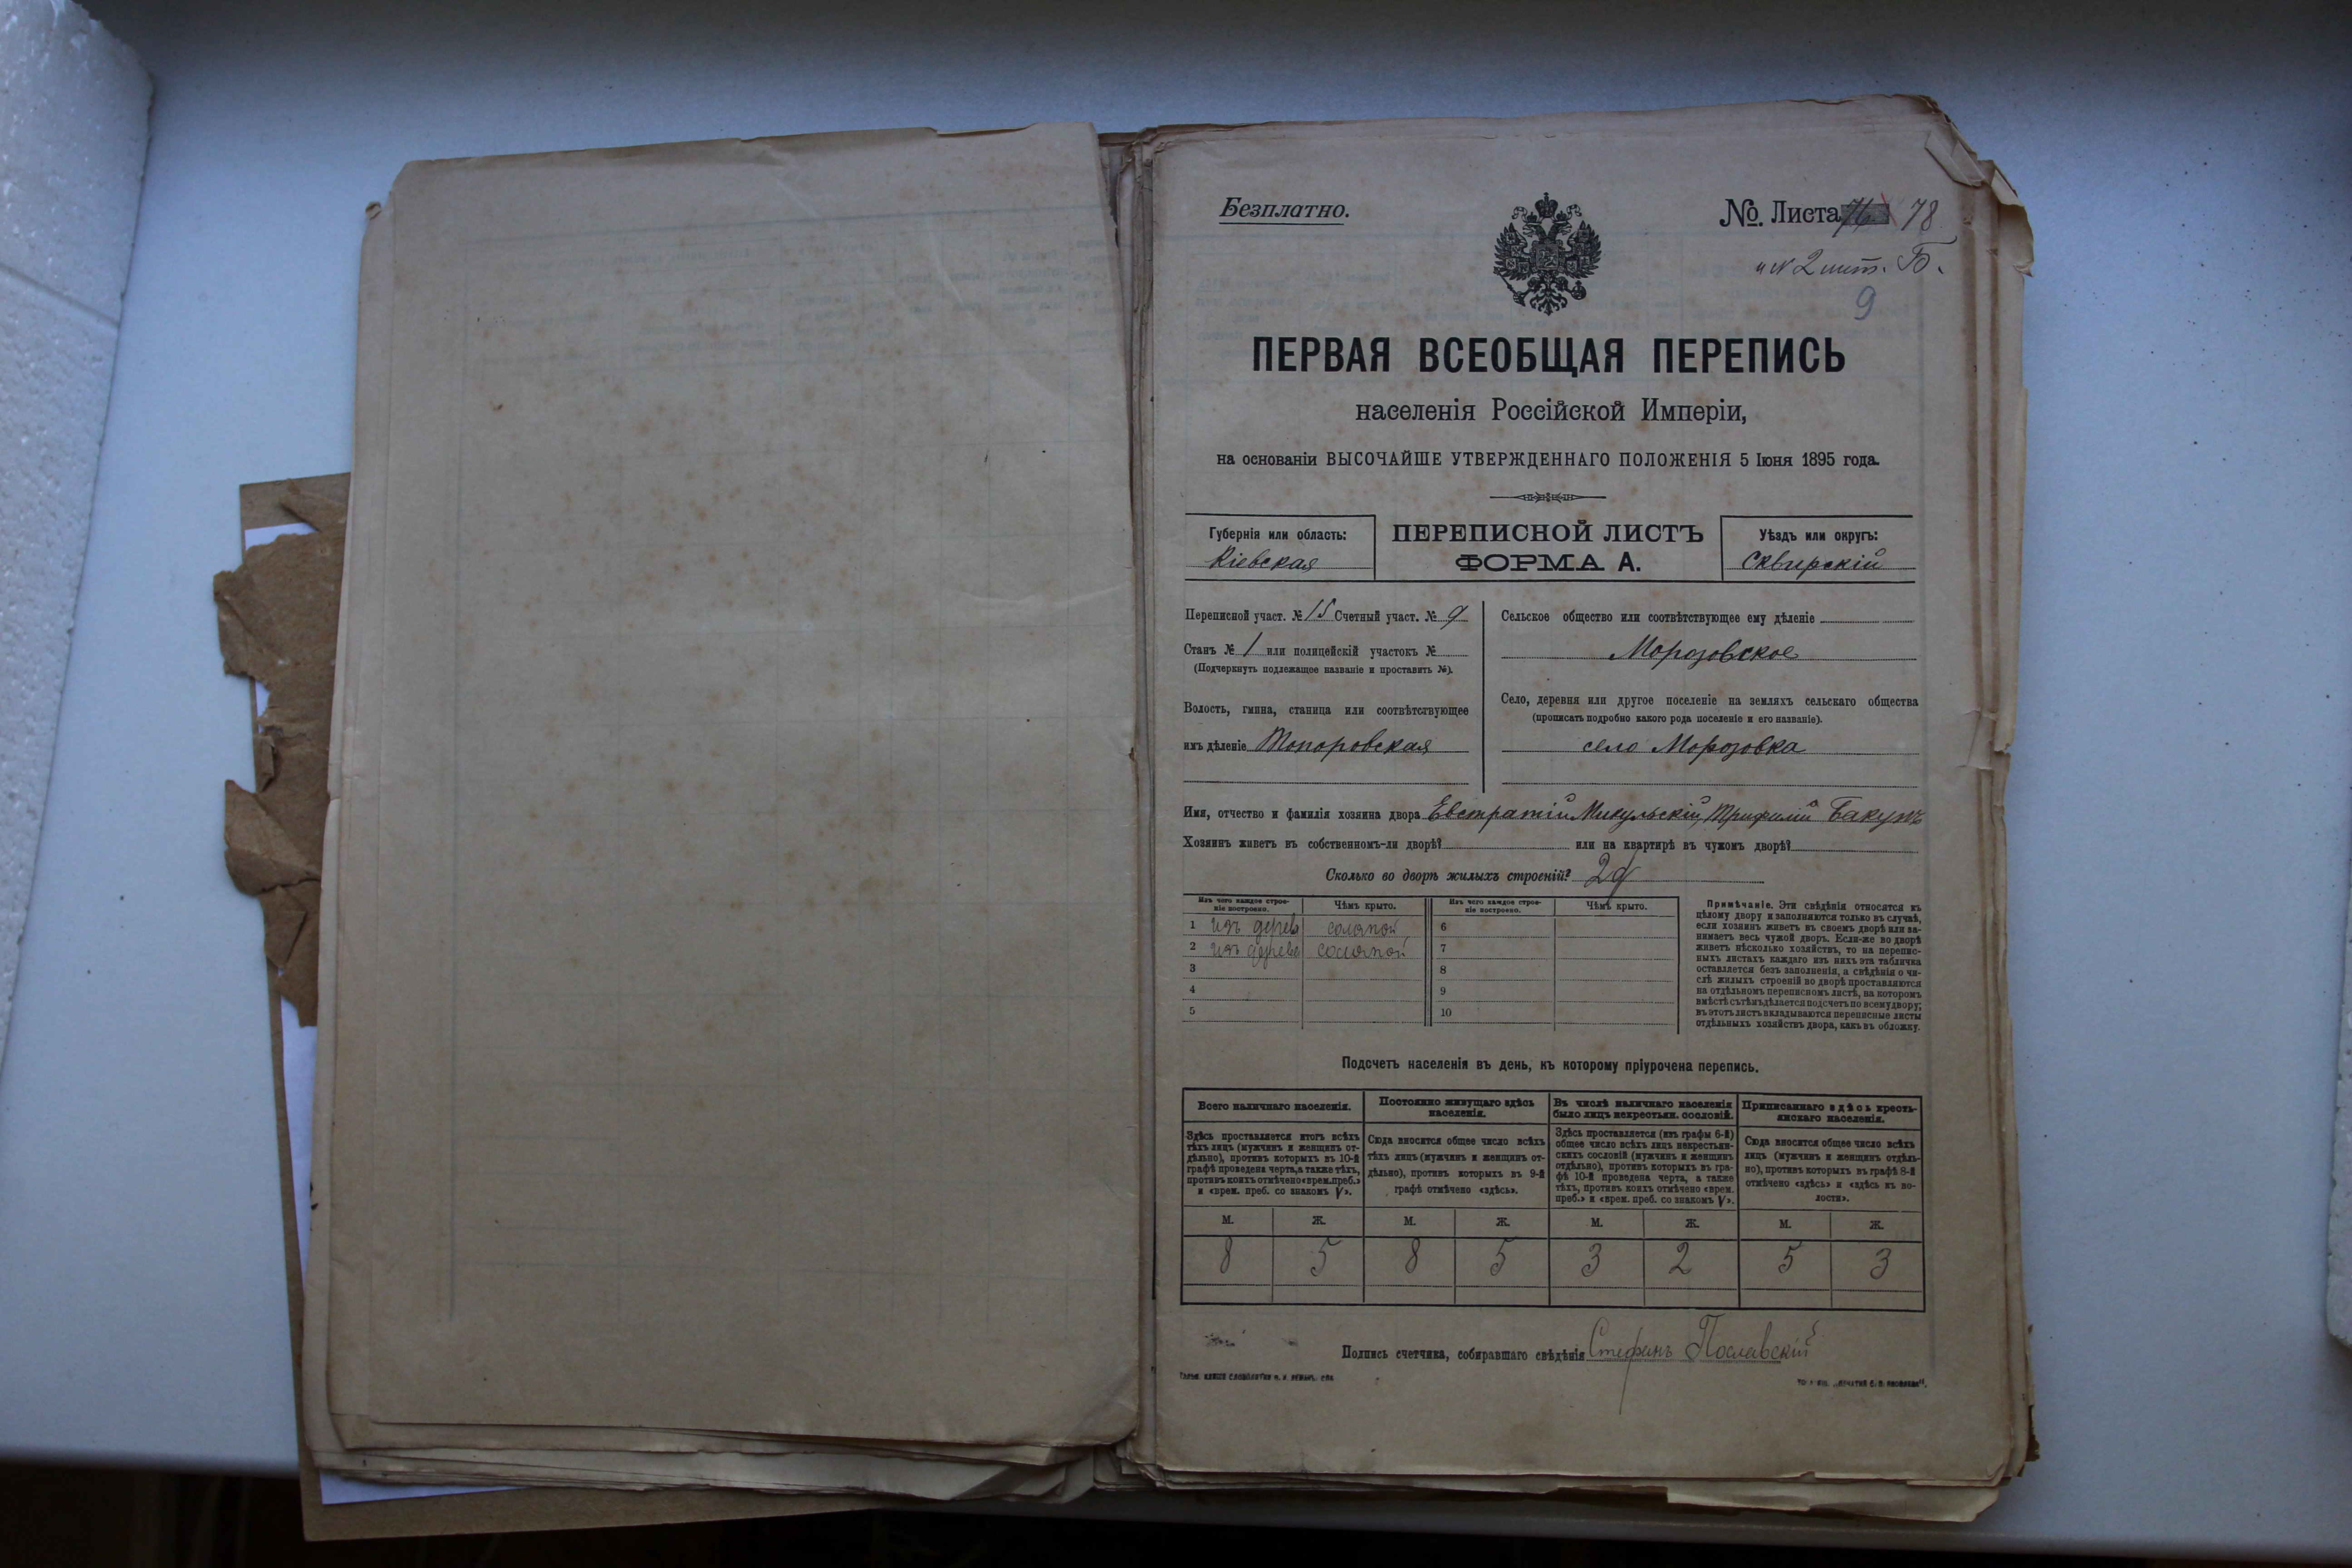 Безплатно.
№. Листа 76 78
9
ПЕРВАЯ ВСЕОБЩАЯ ПЕРЕПИСЬ
населенія Россійской Имперіи,
на основаніи ВЫСОЧАЙШЕ УТВЕРЖДЕННАГО ПОЛОЖЕНІЯ 5 Іюня 1895 года.
Губернія или область:
Кіевская
ПЕРЕПИСНОЙ ЛИСТЪ
ФОРМА А.
Уѣздъ или округъ:
Сквирскій
Переписной участ. № 15 Счетный участ. № 9
Станъ № 1 или полицейскій участокъ №
(Подчеркнуть подлежащее названіе и проставить №).
Волость, гмина, станица или соотвѣтствующее
имъ дѣленіе Топоровская
Сельское общество или соотвѣтствующее ему дѣленіе
Морозовское
Село, деревня или другое поселеніе на земляхъ сельскаго общества
(прописать подробно какого рода поселеніе и его названіе).
село Морозовка
Имя, отчество и фамилія хозяина двора Евстратій Микульскій, Трифилій Бакунъ
Хозяинъ живетъ въ собственномъ-ли дворѣ? или на квартирѣ въ чужомъ дворѣ?
Сколько во дворѣ жилыхъ строеній? 2
Изъ чего каждое строе-
ніе построено.
Чѣмъ крыто.
1 изъ дерева соломой
2 изъ дерева соломой
3
4
5
Изъ чего каждое строе-
ніе построено.
Чѣмъ крыто.
6
7
8
9
10
Примѣчаніе. Эти свѣдѣнія относятся къ
цѣлому двору и заполняются только въ случаѣ,
если хозяинъ живетъ въ своемъ дворѣ или за-
нимаетъ весь чужой дворъ. Если-же во дворѣ
живетъ нѣсколько хозяйствъ, то на перепис-
ныхъ листахъ каждаго изъ нихъ эта табличка
оставляется безъ заполненія, а свѣдѣнія о чи-
слѣ жилыхъ строеній во дворѣ проставляются
на отдѣльномъ переписномъ листѣ, на которомъ
вмѣстѣ съ тѣмъ дѣлается подсчетъ по всему двору;
въ этотъ листъ вкладываются переписные листы
отдѣльныхъ хозяйствъ двора, какъ въ обложку.
Подсчетъ населенія въ день, къ которому пріурочена перепись.
Всего наличнаго населенія.
Здѣсь проставляется итогъ всѣхъ
тѣхъ лицъ (мужчинъ и женщинъ от-
дѣльно), противъ которыхъ въ 10-й
графѣ проведена черта, а также тѣхъ,
противъ коихъ отмѣчено «врем. преб.»
и «врем. преб. со знакомъ V».
Постоянно живущаго здѣсь
населенія.
Сюда вносится общее число всѣхъ
тѣхъ лицъ (мужчинъ и женщинъ от-
дѣльно), противъ которыхъ въ 9-й
графѣ отмѣчено «здѣсь».
Въ числѣ наличнаго населенія
было лицъ некрестьян. сословій.
Здѣсь проставляется (изъ графы 6-й)
общее число всѣхъ лицъ некрестьян-
скихъ сословій (мужчинъ и женщинъ
отдѣльно), противъ которыхъ въ гра-
фѣ 10-й проведена черта, а также
тѣхъ, противъ коихъ отмѣчено «врем.
преб.» и «врем. преб. со знакомъ V».
Приписаннаго здѣсь кресть-
янскаго населенія.
Сюда вносится общее число всѣхъ
лицъ (мужчинъ и женщинъ отдѣль-
но), противъ которыхъ въ графѣ 8-й
отмѣчено «здѣсь» и «здѣсь къ во-
лости».
М. Ж. М. Ж. М. Ж. М. Ж.
8 5 8 5 3 2 5 3
Подпись счетчика, собиравшаго свѣдѣнія Стефанъ Пославскій